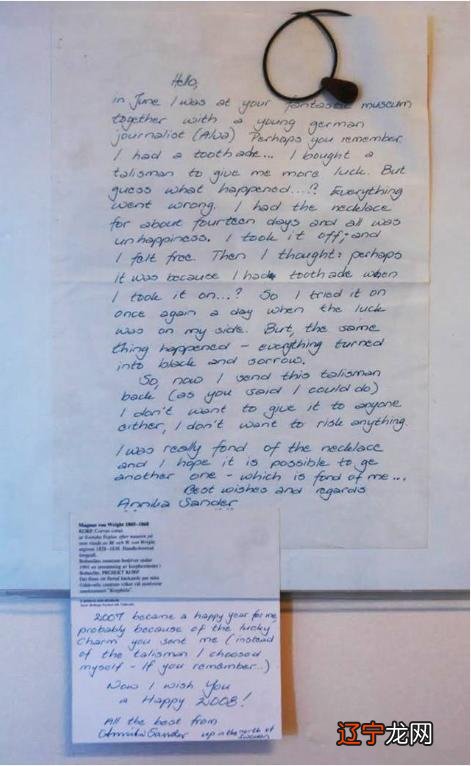 Hello,
in June I was at your fantastic museum
together with a young german
journalist (Alva) Perhaps you remember
I had a toothade... I bought a
talisman to give me more luck. But
guess what happened....? Everything
went wrong. I had the necklace
for about fourteen days and all was
unhappiness. I took it off, and
I felt free. Then I thought: perhaps
it was because I had toothade when
I took it on...? So I tried it on
once again a day when the luck
was on my side. But, the same
thing happened - everything turned
into black and sorrow.
So, now I send this talisman
back (as you said I could do)
I don't want to give it to anyone
either, I don't want to risk anything.
I was really fond of the necklace
and I hope it is possible to ge
another one - which is fond of me...
Best wishes and regards
Annika Sander
Magnus von Wright 1805-1868
KORP, Corvus corax
2007 became a happy year for me
probably because of the lucky
charm you sent me (instead
of the talisman I choosed
myself - If you remember..)
Now I wish you
a Happy 2008!
All the best from
Annika Sander up in the north of
Sweden
辽宁龙网